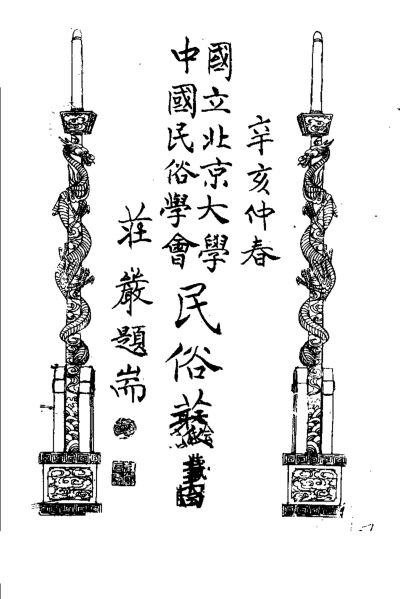 辛亥仲春
國立北京大學
中國民俗學會
民俗
莊嚴題耑